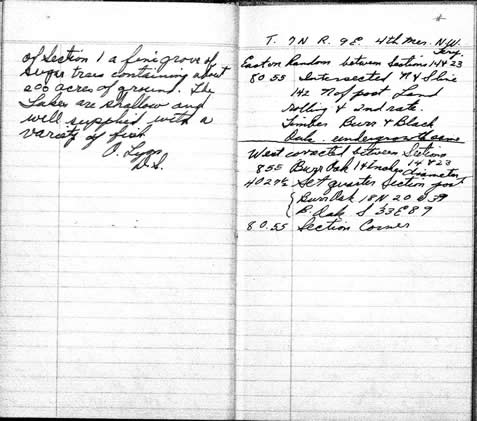 of Section 1 a fine grove of
Sugar trees containing about
200 acres of ground. The
Lakes are shallow and
well supplied with a
variety of fish
O. Lyon
D.S.
T. 7N R. 9E 4th Mer. N.W.
Terry.
Eastern Random between Sections 14 & 23
80 55 Intersected N & S line
142 N of post Land
rolling & 2nd rate.
Timber Burr & Black
Oak. undergrowth same
West corrected between Sections
14 & 23
8 55 Burr Oak 14 inches diameter
40 27½ Set quarter Section post
Burr Oak 18 N 20 W 39
B. Oak S 33 E 89
80.55 Section Corner